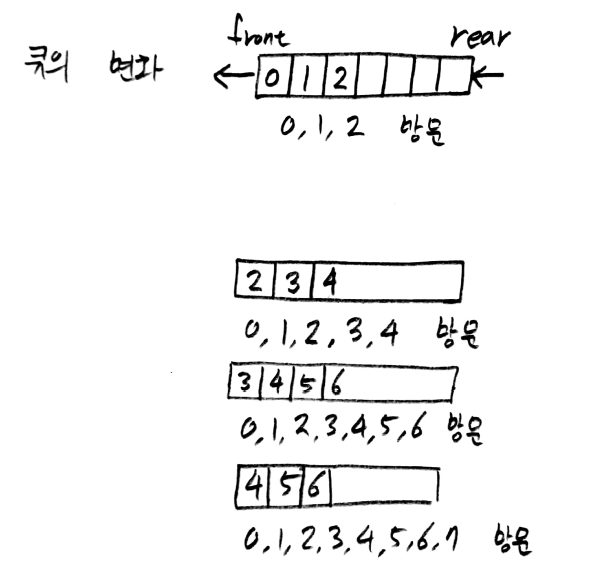 front rear
큐의 변화 0 1 2
0, 1, 2 방문
2 3 4
0, 1, 2, 3, 4 방문
3 4 5 6
0, 1, 2, 3, 4, 5, 6 방문
4 5 6
0, 1, 2, 3, 4, 5, 6, 7 방문